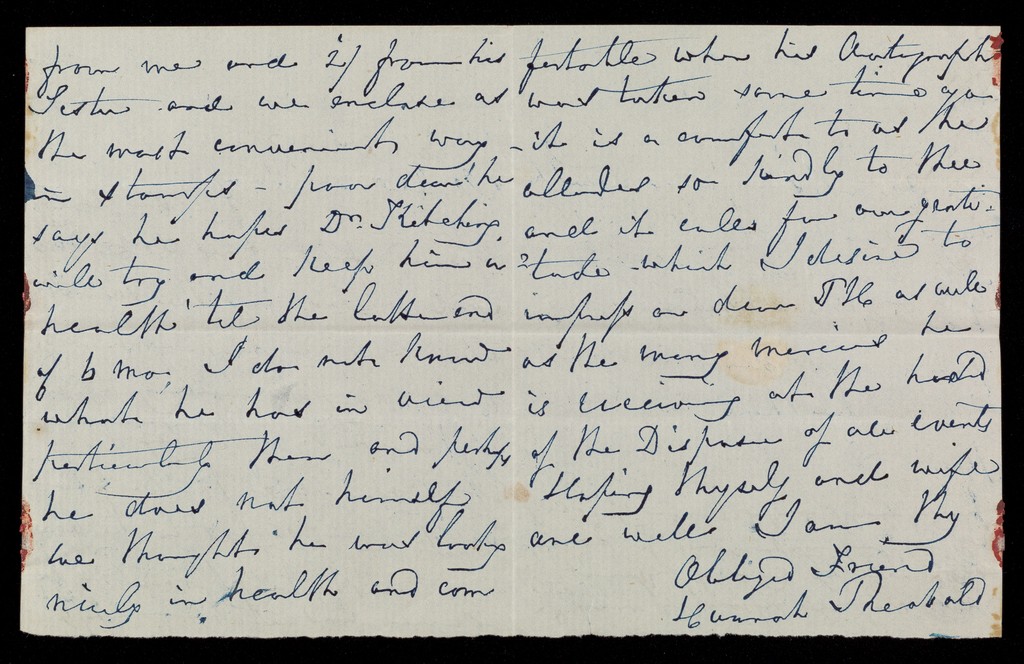 from me and 2/ from his
Sister and we enclose as
the most convenient way
in stamps - poor dear he
says he hopes Dr. Kitching
will try and keep him in
health 'til the latter end
of 6 mo, I do not know
what he has in view
particularly then and perhaps
he does not himself
we thought he was looking
nicely in health and com
fortable when his Autograph
was taken some time ago
- it is a comfort to us he
alludes so kindly to thee
and it calls for our grati-
tude which I desire to
impress on dear TH as well
as the many mercies he
is receiving at the hand
of the Disposer of all events
Hoping thyself and wife
are well I am thy
Obliged Friend
Hannah Theobald